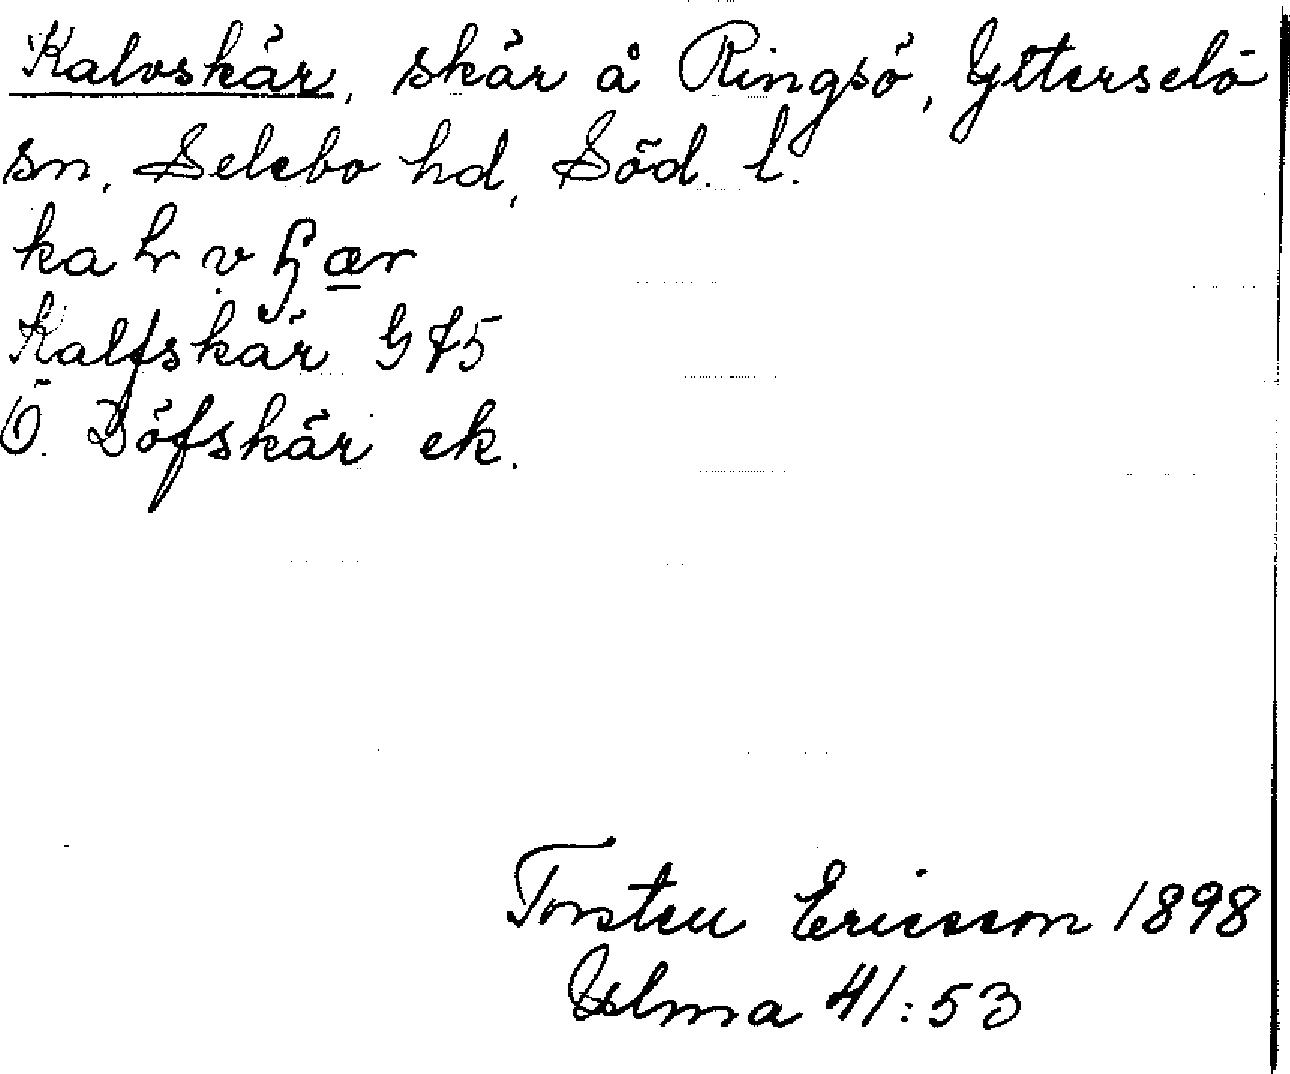 Kalvskär, skär å Ringsö, Ytterselö
sn, Selebo hd, Söd. l.
Kalfskär G 45
Ö. Döfskär ek.
Torsten Ericsson 1898
Ulma 41:53